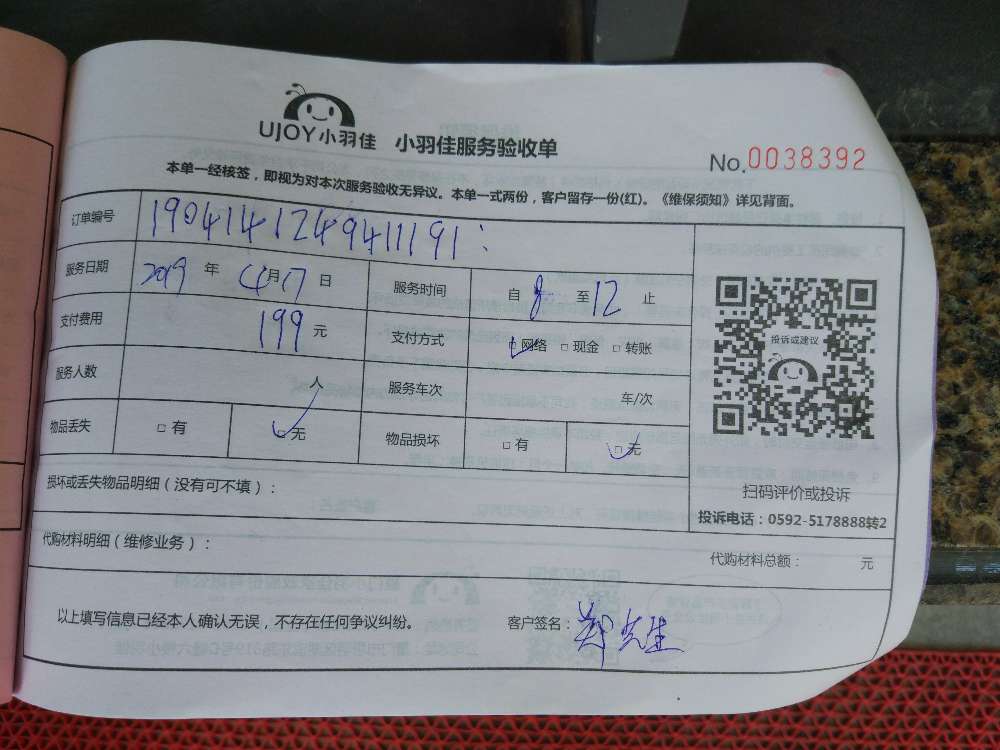 UJOY小羽佳 小羽佳服务验收单
No.0038392
本单一经核签，即视为对本次服务验收无异议。本单一式两份，客户留存一份(红)。《维保须知》详见背面。
订单编号 1904141249411191：
服务日期 2019 年 4月17日 服务时间 自 8 至 12 止
支付费用 199 元 支付方式 □网络 □现金 □转账
服务人数 人 服务车次 车/次
物品丢失 □有 □无 物品损坏 □有 □无
投诉或建议
扫码评价或投诉
投诉电话：0592-5178888转2
损坏或丢失物品明细（没有可不填）：
代购材料明细（维修业务）： 代购材料总额： 元
以上填写信息已经本人确认无误，不存在任何争议纠纷。 客户签名：郑先生